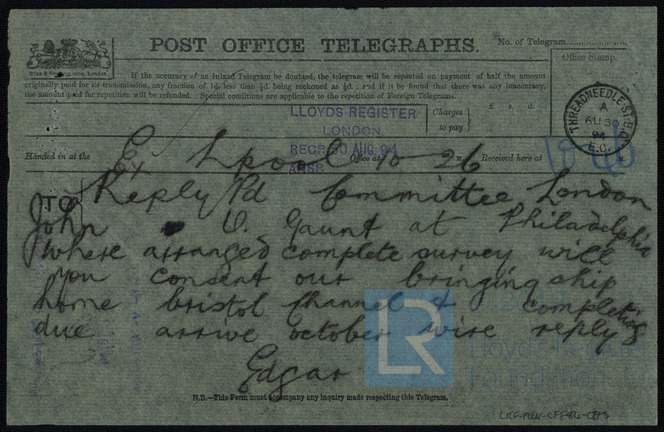 POST OFFICE TELEGRAPHS.
No. of Telegram
Office Stamp.
If the accuracy of an Inland Telegram be doubted, the telegram will be repeated on payment of half the amount
originally paid for its transmission, any fraction of 1d. less than ½d. being reckoned as ½d.; and if it be found that there was any inaccuracy,
the amount paid for repetition will be refunded. Special conditions are applicable to the repetition of Foreign Telegrams.
LLOYDS REGISTER
LONDON
RECD 30 AUG. 94
Charges
to pay
£ s. d.
THREADNEEDLE ST. B.O.
A
AU 30
94
E.C.
Handed in at the
Ex Lpool
Office at
10 26
Received here at
TO
Reply Pd Committee London
John O. Gaunt at Philadelphia
where arranged complete survey will
you consent our bringing ship
home bristol channel & completing
due arrive october wire reply
Edgar
N.B.—This Form must accompany any inquiry made respecting this Telegram.
LR
Lloyd's Register
Foundation